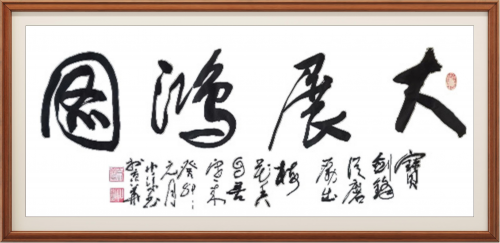 大展鸿图
寶
劍鋒
從磨
礪出
梅
花香
自苦
寒来
癸卯
元月